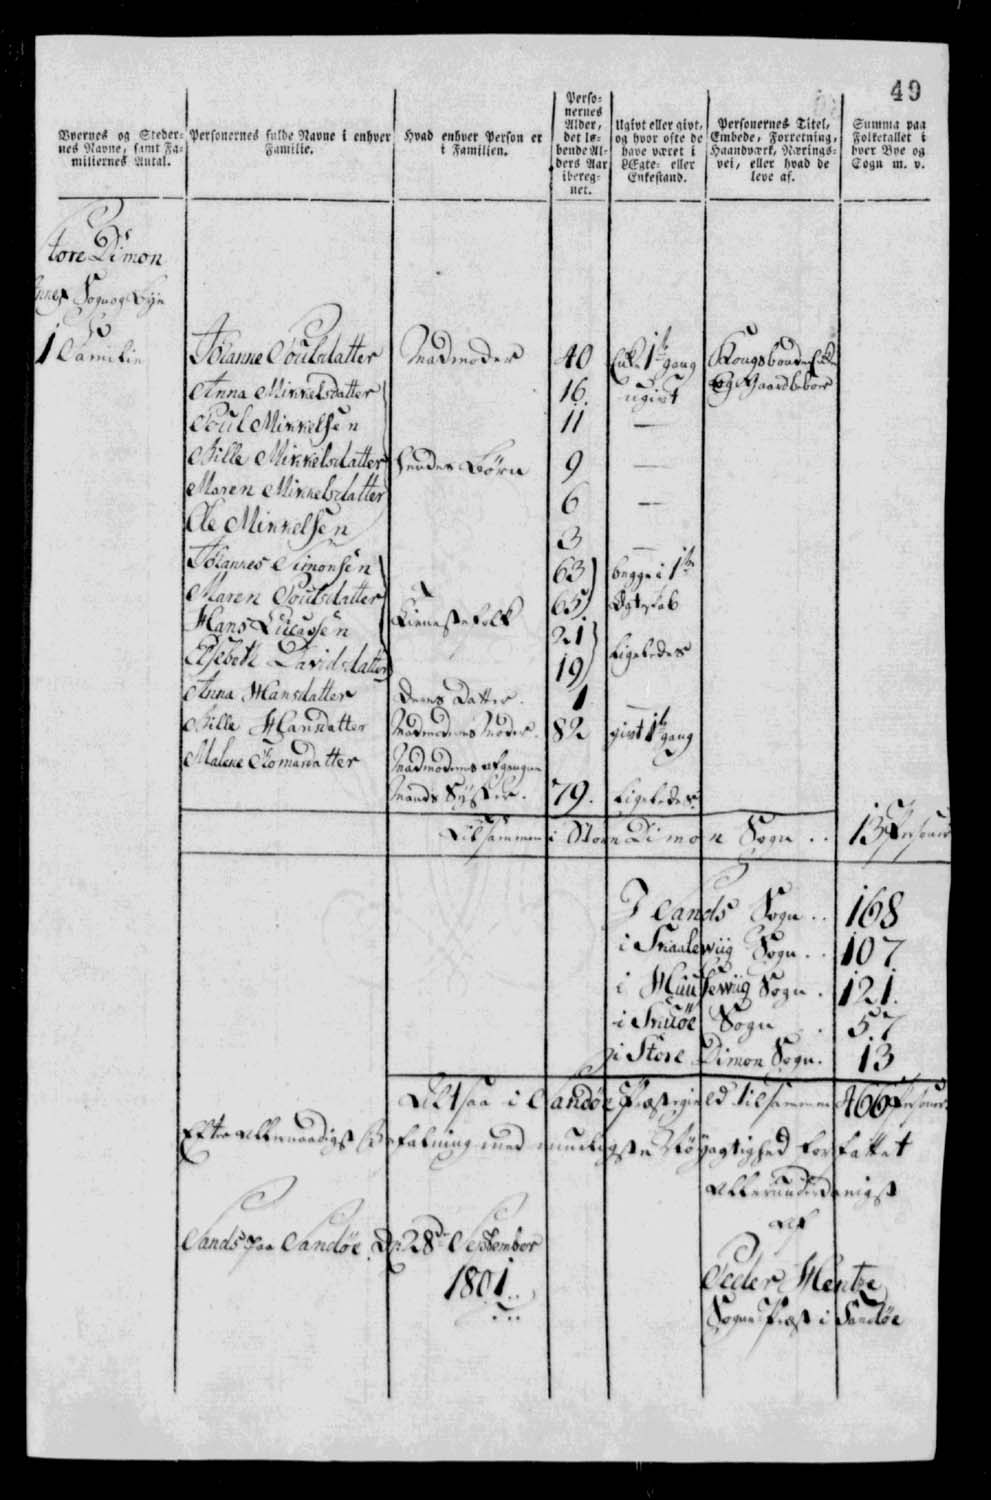 49
Byernes og Steder-
nes Navne, samt Fa-
miliernes Antal.
Personernes fulde Navne i enhver
Familie.
Hvad enhver Person er
i Familien.
Perso-
nernes
Alder,
det lø-
bende Al-
ders Aar
ibereg-
net.
Ugivt eller givt,
og hvor ofte de
have været i
Ægte- eller
Enkestand.
Personernes Titel,
Embede, Forretning,
Haandværk, Nærings-
vei, eller hvad de
leve af.
Summa paa
Folketallet i
hver Bye og
Sogn m. v.
Store Dimon
Annex Sogn og Bye
1 Familie
Johanne Poulsdatter Madmoder 40 Enke 1ste gang Kongsbonde Enke
Anna Mikkelsdatter 16 ugivt og Gaardbeboer
Poul Mikkelsen 11 —
Bille Mikkelsdatter hendes Børn 9 —
Maren Mikkelsdatter 6 —
Ole Mikkelsen 3 —
Johannes Simonsen 63 begge i 1ste
Maren Poulsdatter 65 Egteskab
Hans Lucassen Tienestefolk 21
Elsebeth Davidsdatter 19 ligeledes
Anna Hansdatter Deres Datter 1
Bille Hansdatter Madmoderens Moder 82 givt 1ste gang
Malene Thomasdatter Madmoderens afgangne
Mands Syster 79. ligeledes
Tilsammen i Store Dimon Sogn .. 13 Personer
I Sands Sogn .. 168
i Skaalewiig Sogn .. 107
i Huusewiig Sogn . 121.
i Skuøe Sogn . 57
i Store Dimon Sogn. 13
Altsaa i Sandøe Præstegield tilsammen 466 Personer
Efter Allernaadigst Befalning med mueligste Nøyagtighed forfattet
Allerunderdanigst
Af
Sands paa Sandøe D. 28de September
1801.
Peder Hentze
Sogne Præst i Sandøe